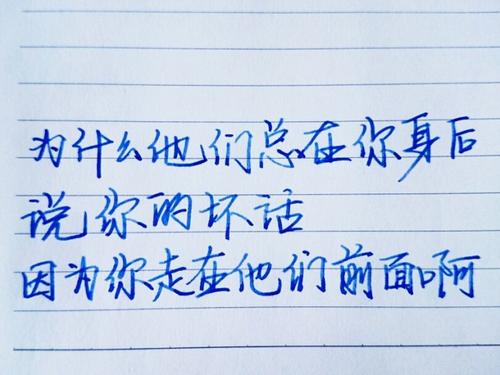 为什么他们总在你身后
说你的坏话
因为你走在他们前面啊